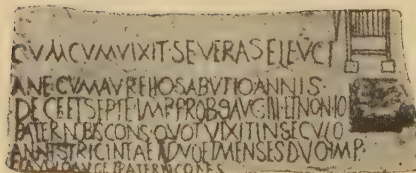 CVMCVMVIXIT·SEVERASELEVCI
ANE·CVMAVRELIOSABVTIOANNIS·
DECEETSEPTE·IMPPROBOAVG·III·ETNONIO
PATERNOBISCONS·QVOTVIXITINSECVLO
ANNISTRICINTAETDVOETMENSESDVO·IMP·